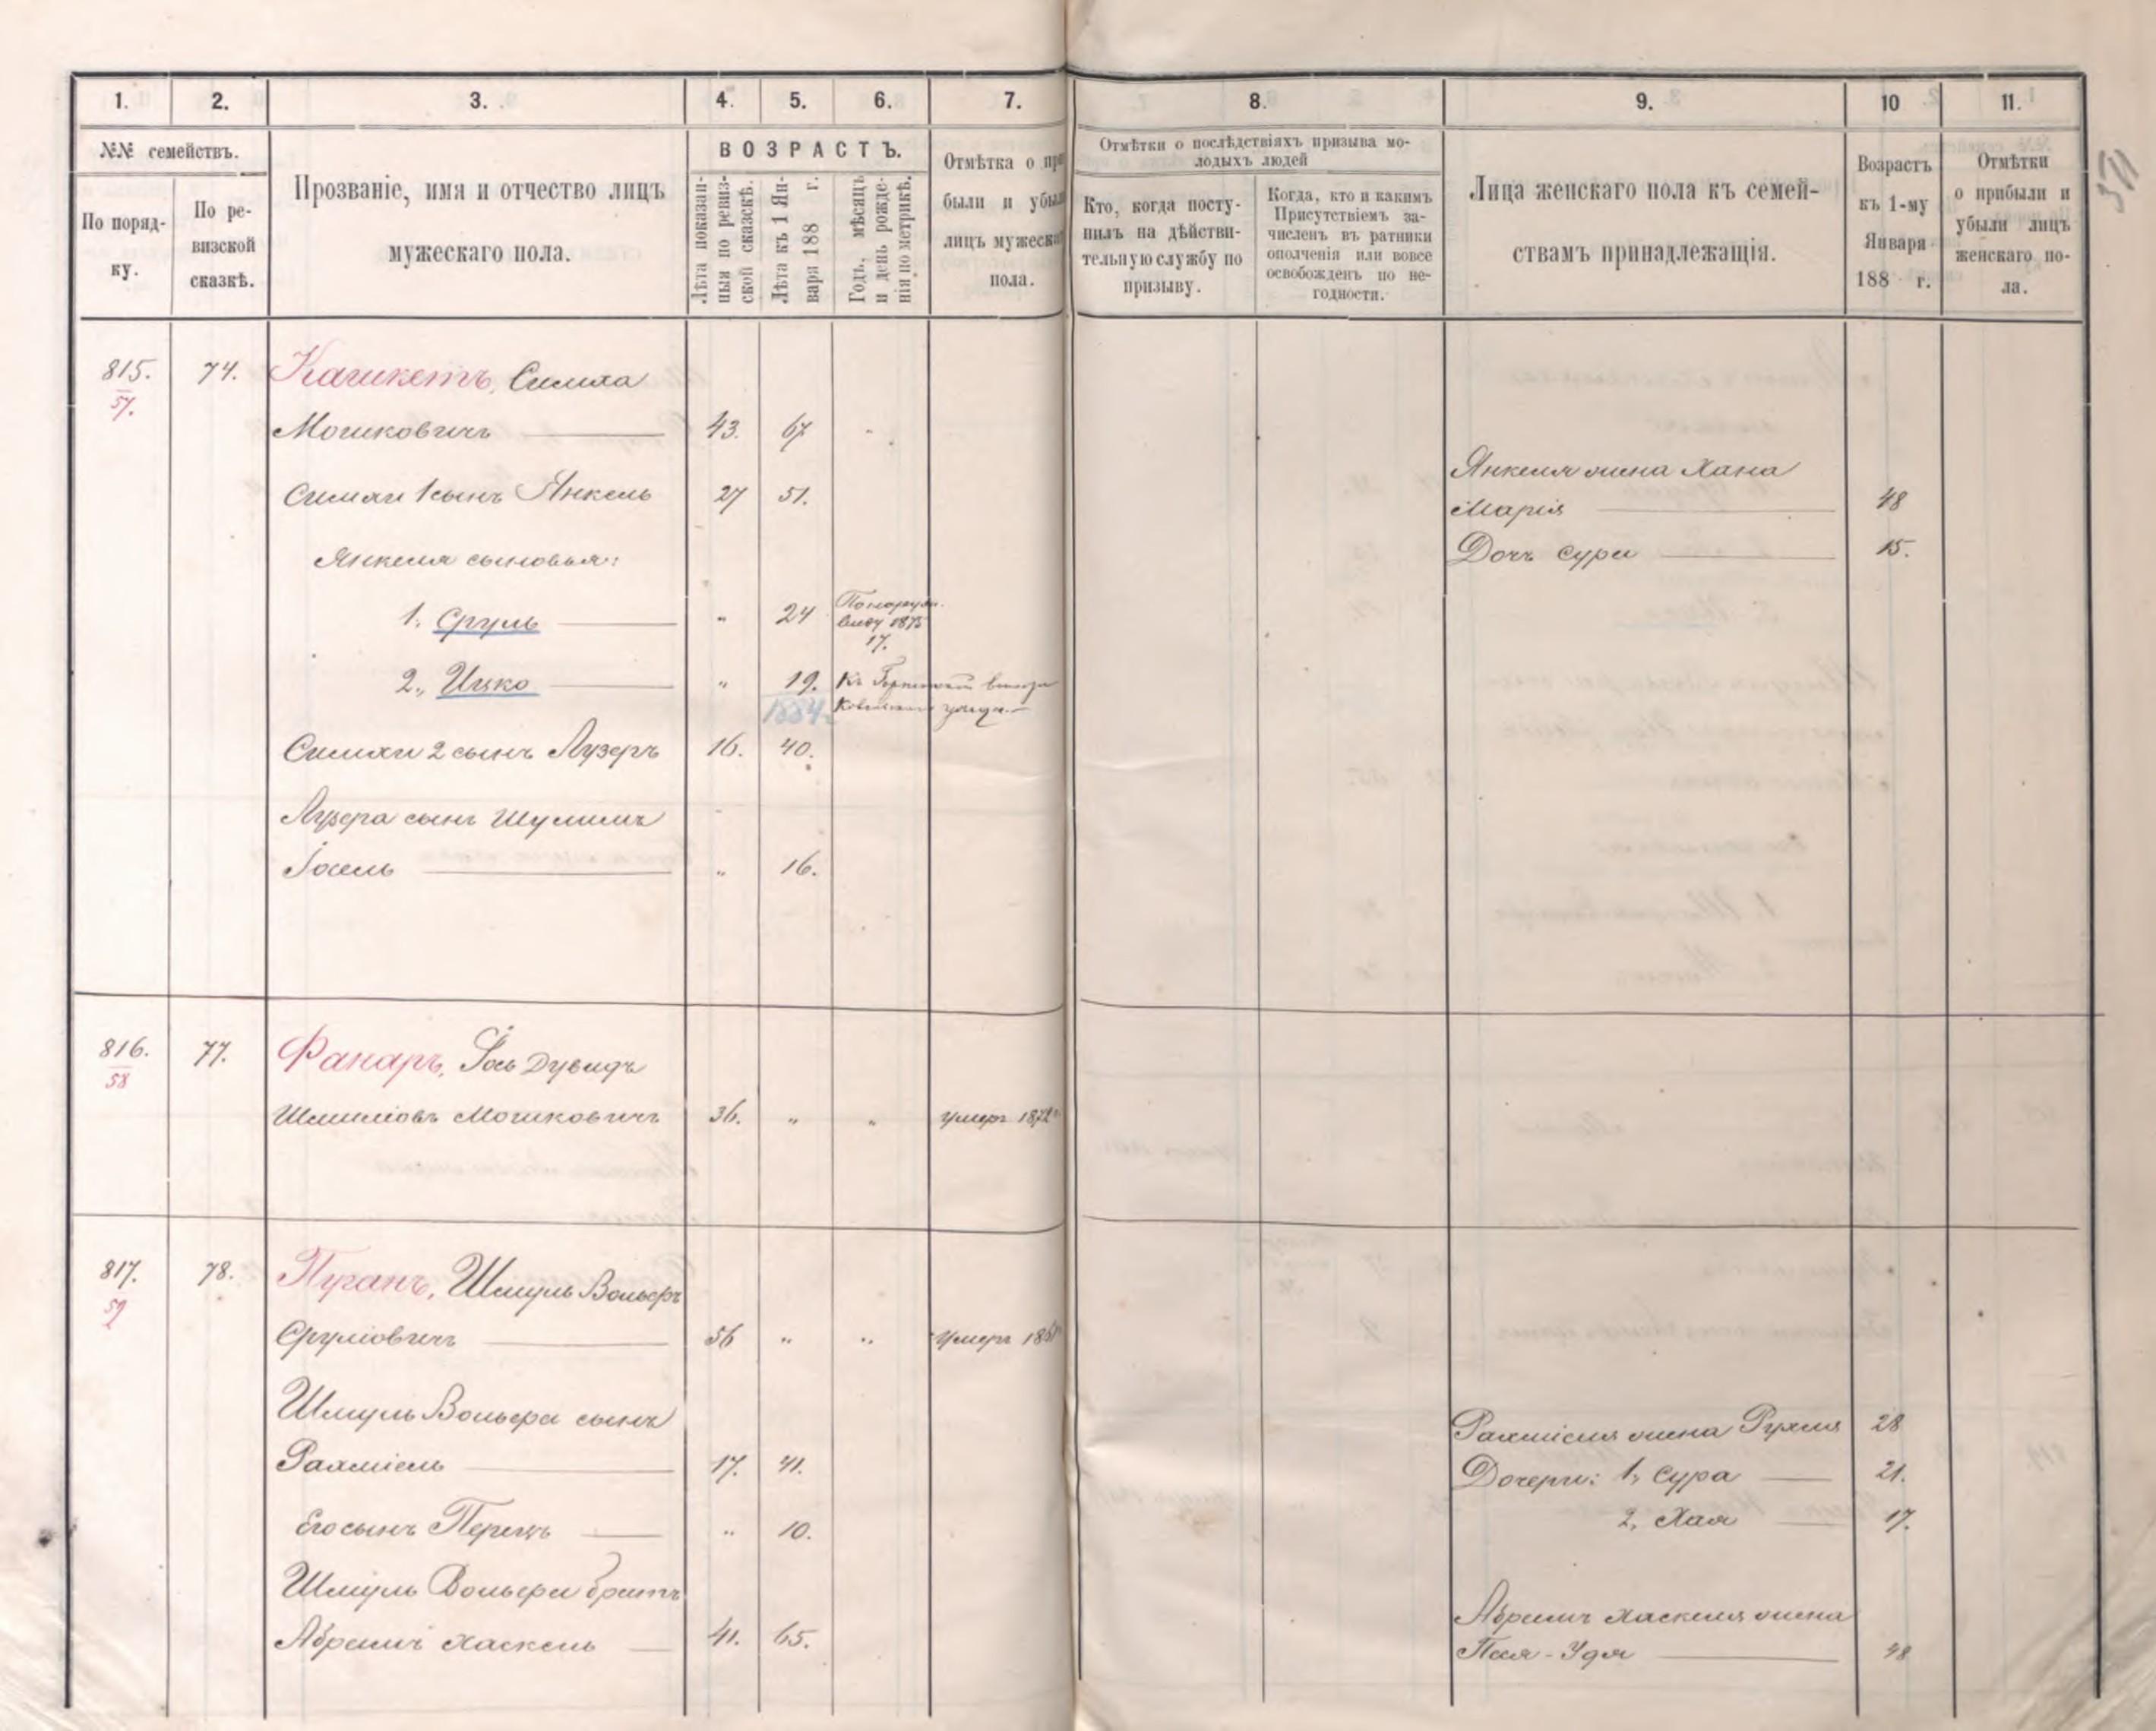 1. 2. 3. 4. 5. 6. 7. 8. 9. 10 11.
№№ семействъ.
По поряд-
ку.
По ре-
визской
сказкѣ.
Прозваніе, имя и отчество лицъ
мужескаго пола.
ВОЗРАСТЪ.
Лѣта показан-
ныя по ревиз-
ской сказкѣ.
Лѣта къ 1 Ян-
варя 188 г.
Годъ, мѣсяцъ
и день рожде-
нія по метрикѣ.
Отмѣтка о при
были и убыли
лицъ мужескаго
пола.
Отмѣтки о послѣдствіяхъ призыва мо-
лодыхъ людей
Кто, когда посту-
пилъ на дѣйстви-
тельную службу по
призыву.
Когда, кто и какимъ
Присутствіемъ за-
численъ въ ратники
ополченія или вовсе
освобожденъ по не-
годности.
Лица женскаго пола къ семей-
ствамъ принадлежащія.
Возрастъ
къ 1-му
Января
188 г.
Отмѣтки
о прибыли и
убыли лицъ
женскаго по-
ла.
815. 74. Кашкетъ, Симха
57.
Мошковичъ 43. 67 "
Янкеля жена Хана
Симхи 1 сынъ Янкель 27 51.
Марія 48
Янкеля сыновья:
Дочь Сура 15.
1. Сруль " 24
1875
17.
2., Ицко " 19. Къ
1884.
Симхи 2 сынъ Лузеръ 16. 40.
Лузера сынъ Шулимъ
Іосель " 16.
816. 77. Фанаръ, Іось Дувидъ
58
Шлиміовъ Мошковичъ 36. " " умеръ 1872
817. 78. Пуганъ, Шмуль Вольферъ
59
Сруліовичъ 56 " " умеръ
Шмуль Вольфера сынъ
Рахміеля жена Рухля 28
Рахміель 17. 41.
Дочери: 1, Сура 21.
Его сынъ Перецъ " 10.
2, Хая 17.
Шмуль Вольфера братъ
Абрамъ Хаскеля жена
Абрамъ Хаскель 41. 65.
Песя-Удя 48